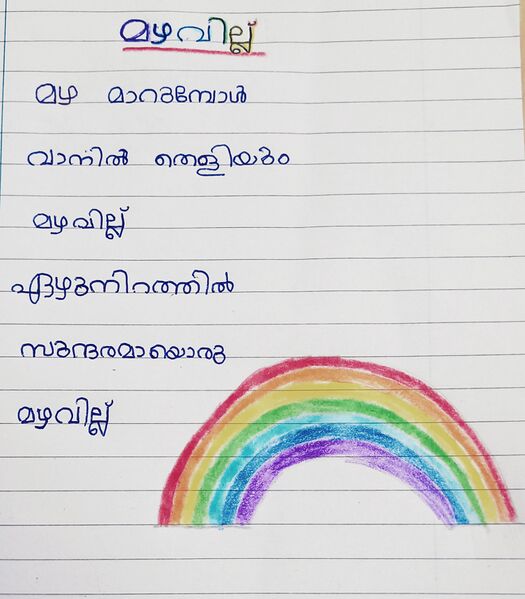 മഴവില്ല്
മഴ മാറുമ്പോൾ
വാനിൽ തെളിയും
മഴവില്ല്
ഏഴുനിറത്തിൽ
സുന്ദരമായൊരു
മഴവില്ല്